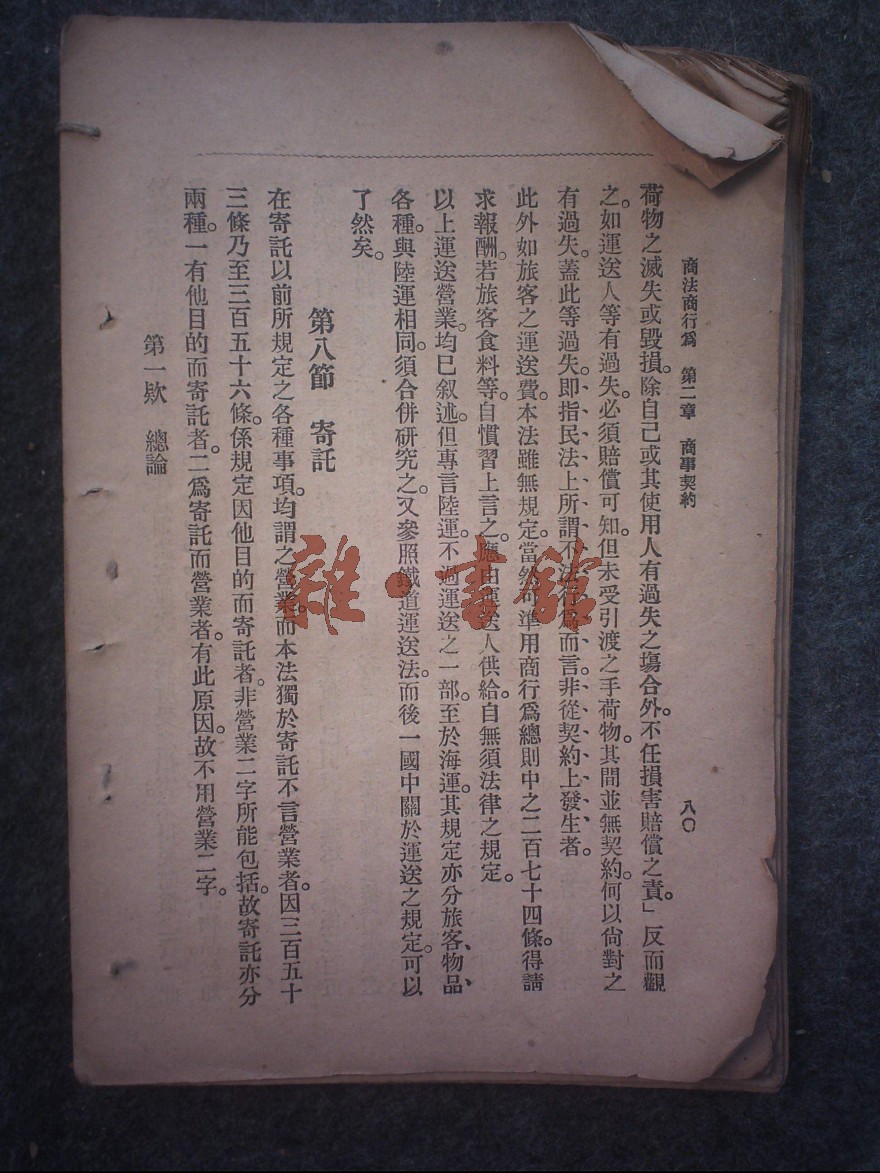 商法商行爲　第二章　商事契約　八〇
荷物之滅失或毀損。除自己或其使用人有過失之塲合外。不任損害賠償之責。」反而觀
之。如運送人等有過失。必須賠償可知。但未受引渡之手荷物。其間並無契約。何以尙對之
有過失。蓋此等過失。卽指民法上所謂不法行爲而言。非從契約上發生者。
此外如旅客之運送費。本法雖無規定。當然可準用商行爲總則中之二百七十四條。得請
求報酬。若旅客食料等。自慣習上言之。應由運送人供給。自無須法律之規定。
以上運送營業。均已叙述。但專言陸運。不過運送之一部。至於海運。其規定亦分旅客、物品、
各種。與陸運相同。須合併硏究之。又參照鐵道運送法。而後一國中關於運送之規定。可以
了然矣。
第八節　寄託
在寄託以前所規定之各種事項。均謂之營業。而本法獨於寄託不言營業者。因三百五十
三條乃至三百五十六條。係規定因他目的而寄託者。非營業二字所能包括。故寄託亦分
兩種。一有他目的而寄託者。二爲寄託而營業者。有此原因。故不用營業二字。
第一欵　總論
雜·書館